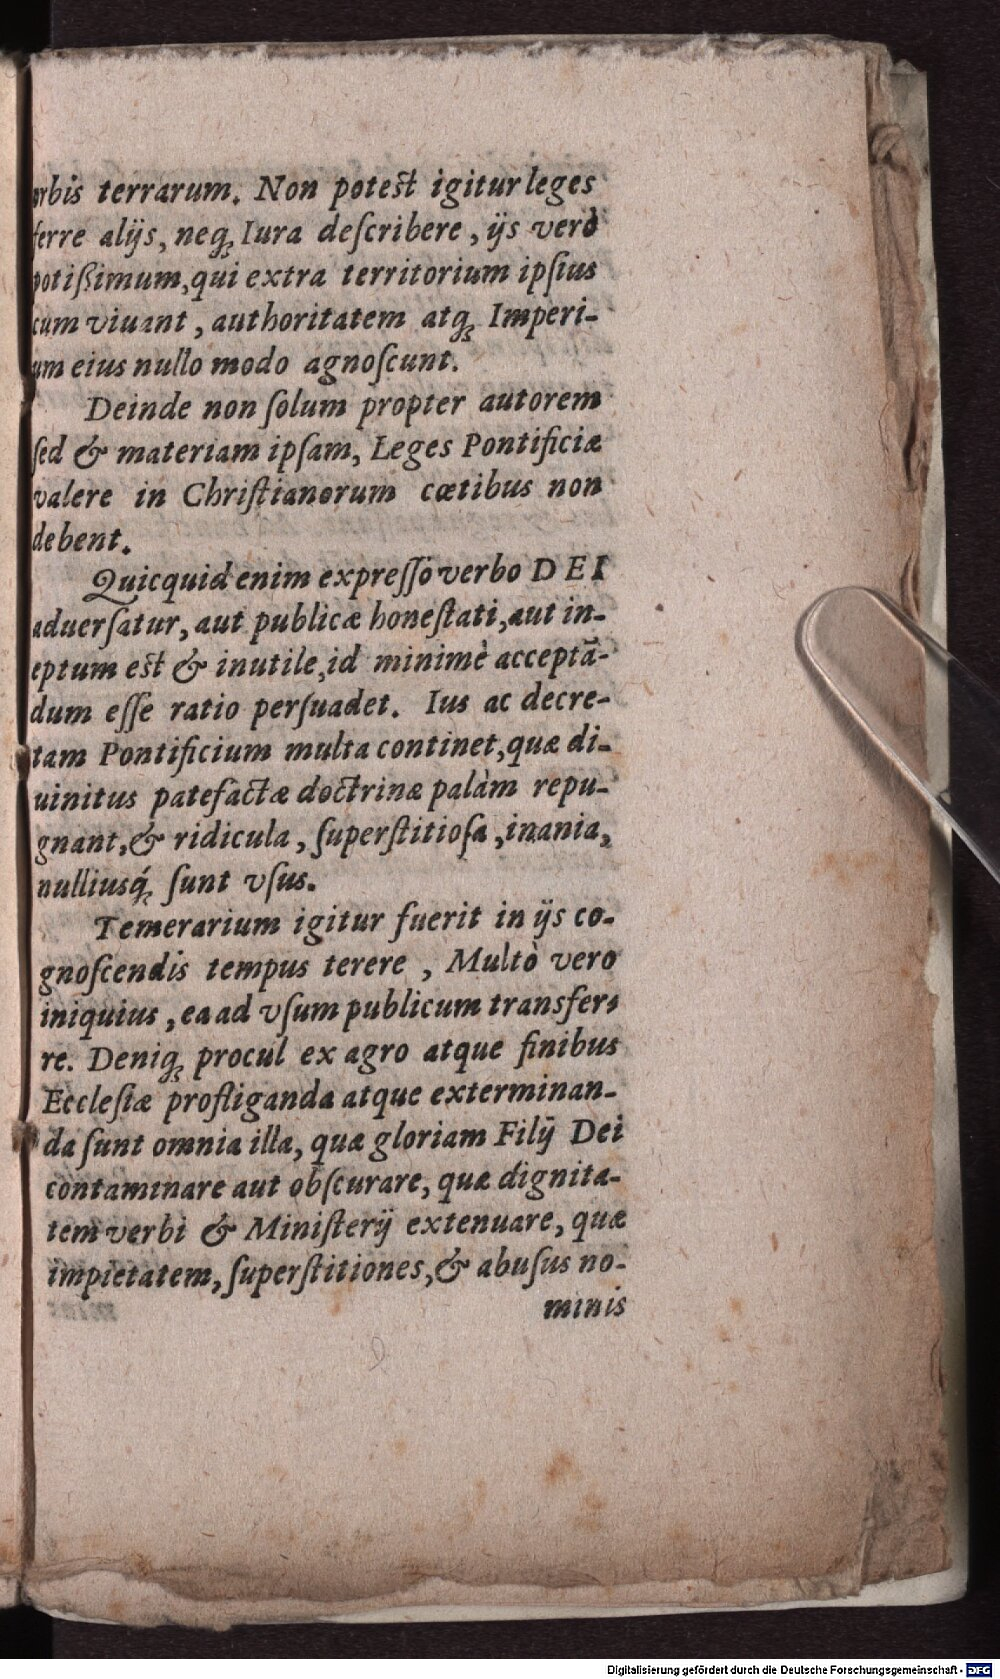 orbis terrarum. Non poteſt igitur leges
ferre alijs, neq; Iura deſcribere, ijs verò
potiſsimum, qui extra territorium ipſius
cum viuant, authoritatem atq; Imperi-
um eius nullo modo agnoſcunt.
Deinde non ſolum propter autorem
ſed & materiam ipſam, Leges Pontificiæ
valere in Chriſtianorum cœtibus non
debent.
Quicquid enim expreſſo verbo DEI
aduerſatur, aut publicæ honeſtati, aut in-
eptum eſt & inutile, id minimè acceptã-
dum eſſe ratio perſuadet. Ius ac decre-
tam Pontificium multa continet, quæ di-
uinitus patefactæ doctrinæ palàm repu-
gnant, & ridicula, ſuperſtitioſa, inania,
nulliusq́; ſunt vſus.
Temerarium igitur fuerit in ijs co-
gnoſcendis tempus terere, Multò vero
iniquius, ea ad vſum publicum transfer-
re. Deniq; procul ex agro atque finibus
Eccleſiæ profliganda atque exterminan-
da ſunt omnia illa, quæ gloriam Filij Dei
contaminare aut obſcurare, quæ dignita-
tem verbi & Miniſterij extenuare, quæ
impietatem, ſuperſtitiones, & abuſus no-
minis
Digitalisierung gefördert durch die Deutsche Forschungsgemeinschaft - DFG